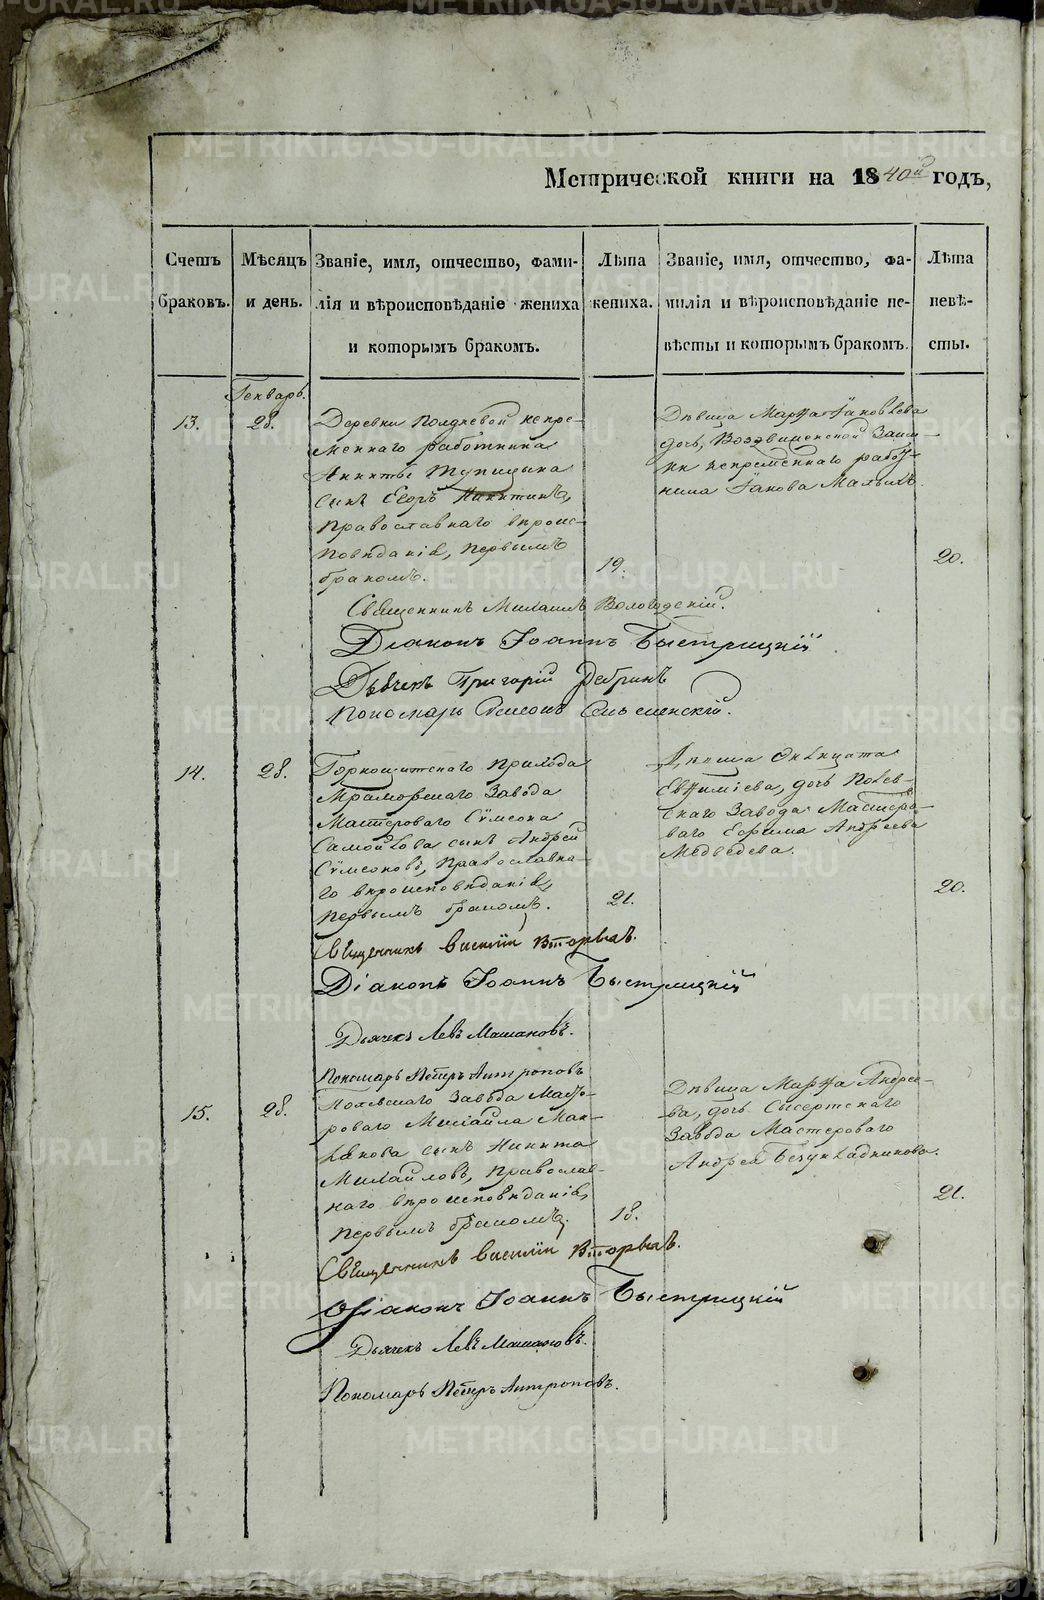 Метрической книги на 1840й годъ,
Счетъ браковъ.
Мѣсяцъ и день.
Званіе, имя, отчество, фами-
лія и вѣроисповѣданіе жениха
и которымъ бракомъ.
Лѣта
жениха.
Званіе, имя, отчество, фа-
милія и вѣроисповѣданіе не-
вѣсты и которымъ бракомъ.
Лѣта
невѣ-
сты.
Генварь.
13.
28.
Деревни Полдневой непре-
меннаго работника
Никиты Тупицына
сынъ Егоръ Никитинъ,
Православнаго вѣроис-
повѣданія, первымъ
бракомъ.
19.
Дѣвица Марѳа Іаковлева
дочь, Воздвиженской Заим-
ки непременнаго работ-
ника Іакова Малыхъ.
20.
Священникъ Михаилъ Вологодскій.
Діаконъ Іоаннъ Быстрицкій
Дьячекъ Григорій Ребринъ
Пономарь Сѵмеонъ Смоленскій.
14.
28.
Горнощитскаго Прихода
Мраморскаго Завода
Мастероваго Сѵмеона
Самойлова сынъ Андрей
Сѵмеоновъ, Православна-
го вѣроисповѣданія,
первымъ бракомъ.
21.
Дѣвица Гликерія
Евѳиміева, дочь Полев-
скаго Завода Мастеро-
ваго Ефима Андреева
Медведева.
20.
Священникъ Василій Второвъ.
Діаконъ Іоаннъ Быстрицкій
Дьячекъ Левъ Машановъ.
Пономарь Петръ Антроповъ
15.
28.
Полевскаго Завода Масте-
роваго Михайла
сынъ Никита
Михайловъ, Православ-
наго вѣроисповѣданія,
первымъ бракомъ.
18.
Дѣвица Марѳа Андре-
ева, дочь Сысертскаго
Завода Мастероваго
Андрея Безукладникова.
21.
Священникъ Василій Второвъ.
Діаконъ Іоаннъ Быстрицкій
Дьячекъ Левъ Машановъ.
Пономарь Петръ Антроповъ.
METRIKI.GASO-URAL.RU